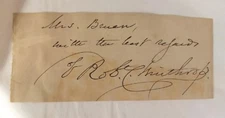 Mrs. Bevan,
with the best regards
of Robt. C. Winthrop.